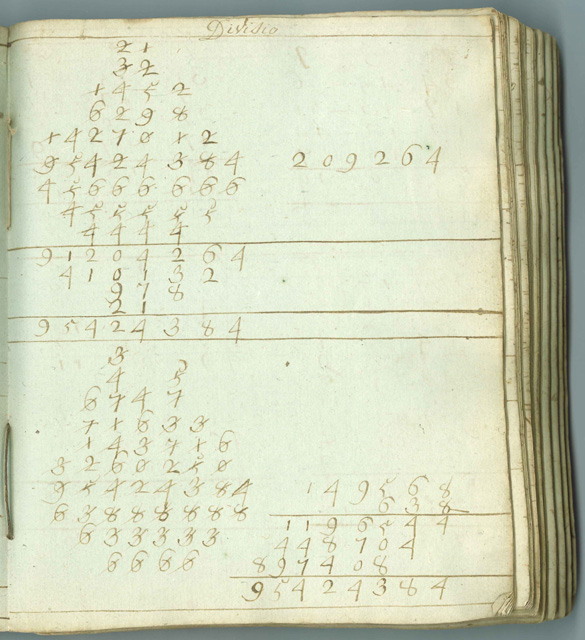 Divisio
2 1
3 2
1 4 5 2
6 2 9 8
1 4 2 7 0 1 2
9 5 4 2 4 3 8 4 2 0 9 2 6 4
4 5 6 6 6 6 6 6
4 5 5 5 5 5
4 4 4 4
9 1 2 0 4 2 6 4
4 1 0 1 3 2
9 7 8
2 1
9 5 4 2 4 3 8 4
3
4 5
6 7 4 7
7 1 6 3 3
1 4 3 7 1 6
3 2 6 0 2 5 0
9 5 4 2 4 3 8 4
6 3 8 8 8 8 8 8
6 3 3 3 3 3
6 6 6 6
1 4 9 5 6 8
6 3 8
1 1 9 6 5 4 4
4 4 8 7 0 4
8 9 7 4 0 8
9 5 4 2 4 3 8 4